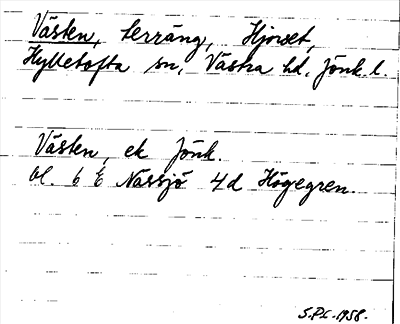 Västen, terräng, Hjorset,
Hylletofta sn, Västra hd, Jönk. l.
Västen, ek Jönk.
bl. 6 E Nässjö 4d Högegren.
S.P.L. 1958.